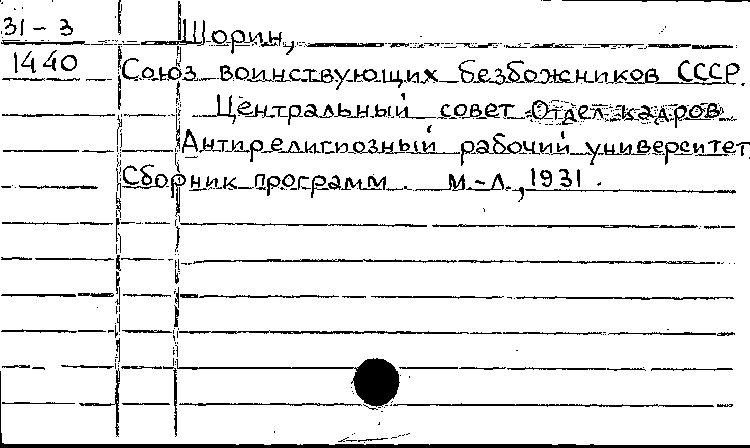 31-3 Шорин,
1440 Союз воинствующих безбожников СССР.
Центральный совет Отдел кадров
Антирелигиозный рабочий университет.
Сборник программ. М.-Л., 1931.